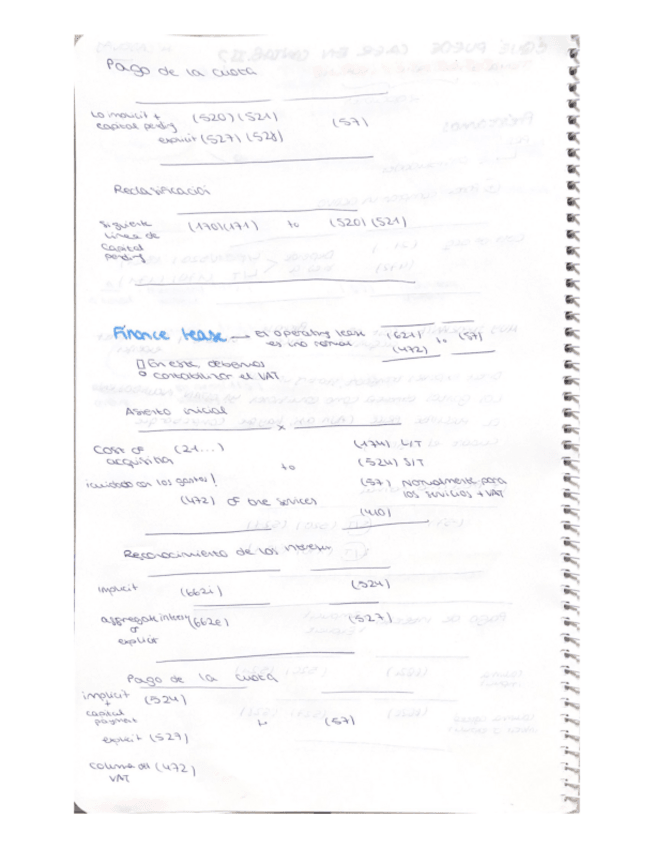 Pago de la cuota
Lo implicit + (520) (521)
capital pending (57)
explicit (527) (528)
Reclasificación
siguiente (170) (171) to (520) (521)
línea de
capital
pending
Finance lease → El operating lease (621) to (57)
es uno normal (472)
En este, debemos
contabilizar el VAT
Asiento inicial
x
Cost of (21...) (174) L/T
acquisition to (524) S/T
¡cuidado con los gastos! (57) Normalmente para
los servicios + VAT
(472) of the services
(410)
Reconocimiento de los intereses
implicit (6624) (524)
aggregate (662e) (527)
or
explicit
Pago de la cuota
implicit (524)
+
capital to (57)
payment
explicit (527)
columna del (472)
VAT